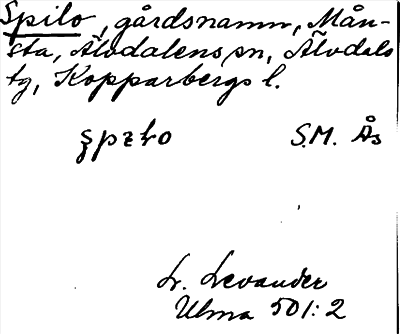 Spilo, gårdsnamn, Mån-
sta, Älvdalens sn, Älvdals
tg, Kopparbergs l.
S.M. Ås
L. Levander
Ulma 501:2